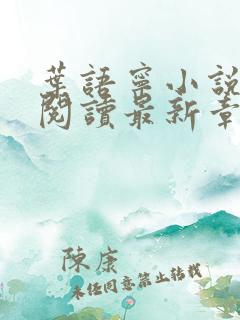 葉語寧小說
閱讀最新章
陳康
未經同意禁止轉載